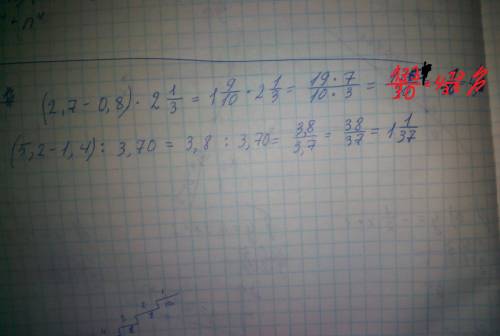 (2,7-0,8)·2 1/3 = 1 9/10 · 2 1/3 = 19·7/10·3 = 133/30 =
(5,2-1,4): 3,70 = 3,8 : 3,70 = 3,8/3,7 = 38/37 = 1 1/37